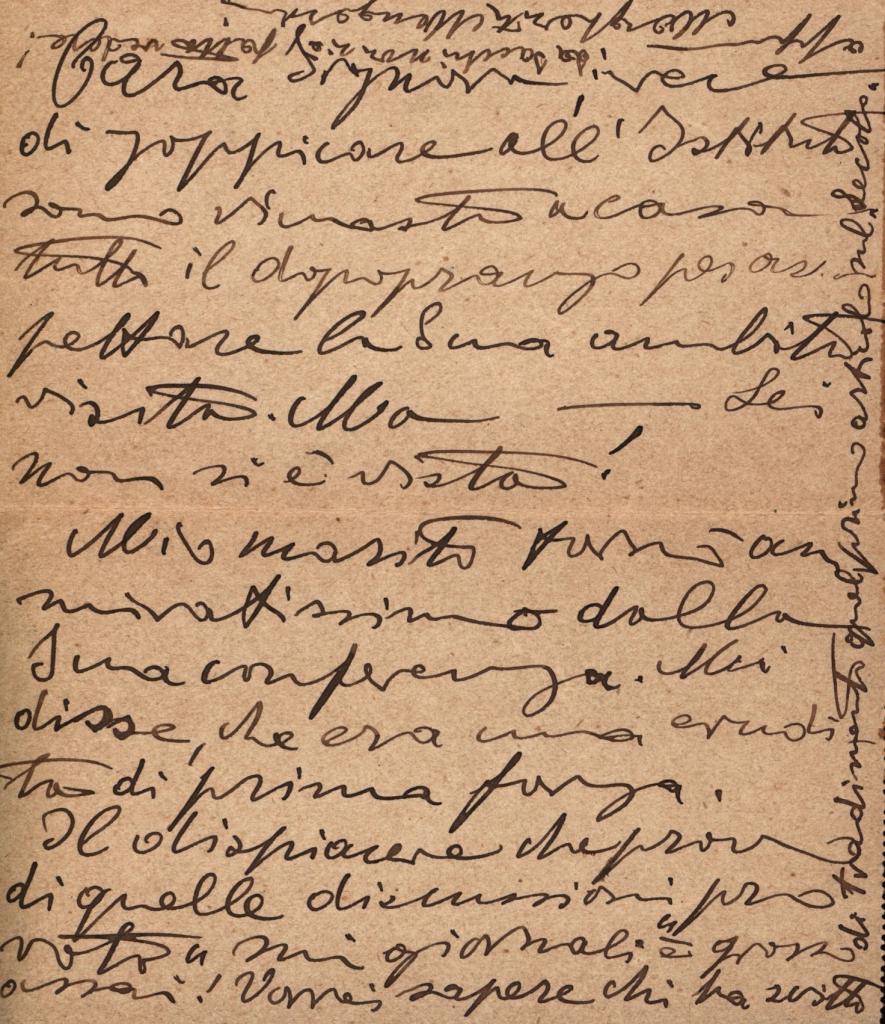 Cara Signora, invece
di zoppicare all' Istituto
sono rimasta a casa
tutto il dopopranzo per as
pettare la Sua ambita
visita. Ma — Lei
non si è vista!
Mio marito tornò am
miratissimo dalla
Sua conferenza. Mi
disse, che era una erudi
ta di prima forza.
Il dispiacere che prov
di quelle discussioni pro
voto "sui giornali" è grosso
assai! Vorrei sapere chi ha scritto
di tradimento quel primo articolo sul Secolo.
da Sacchi non si è fatto vedere!
Margherita